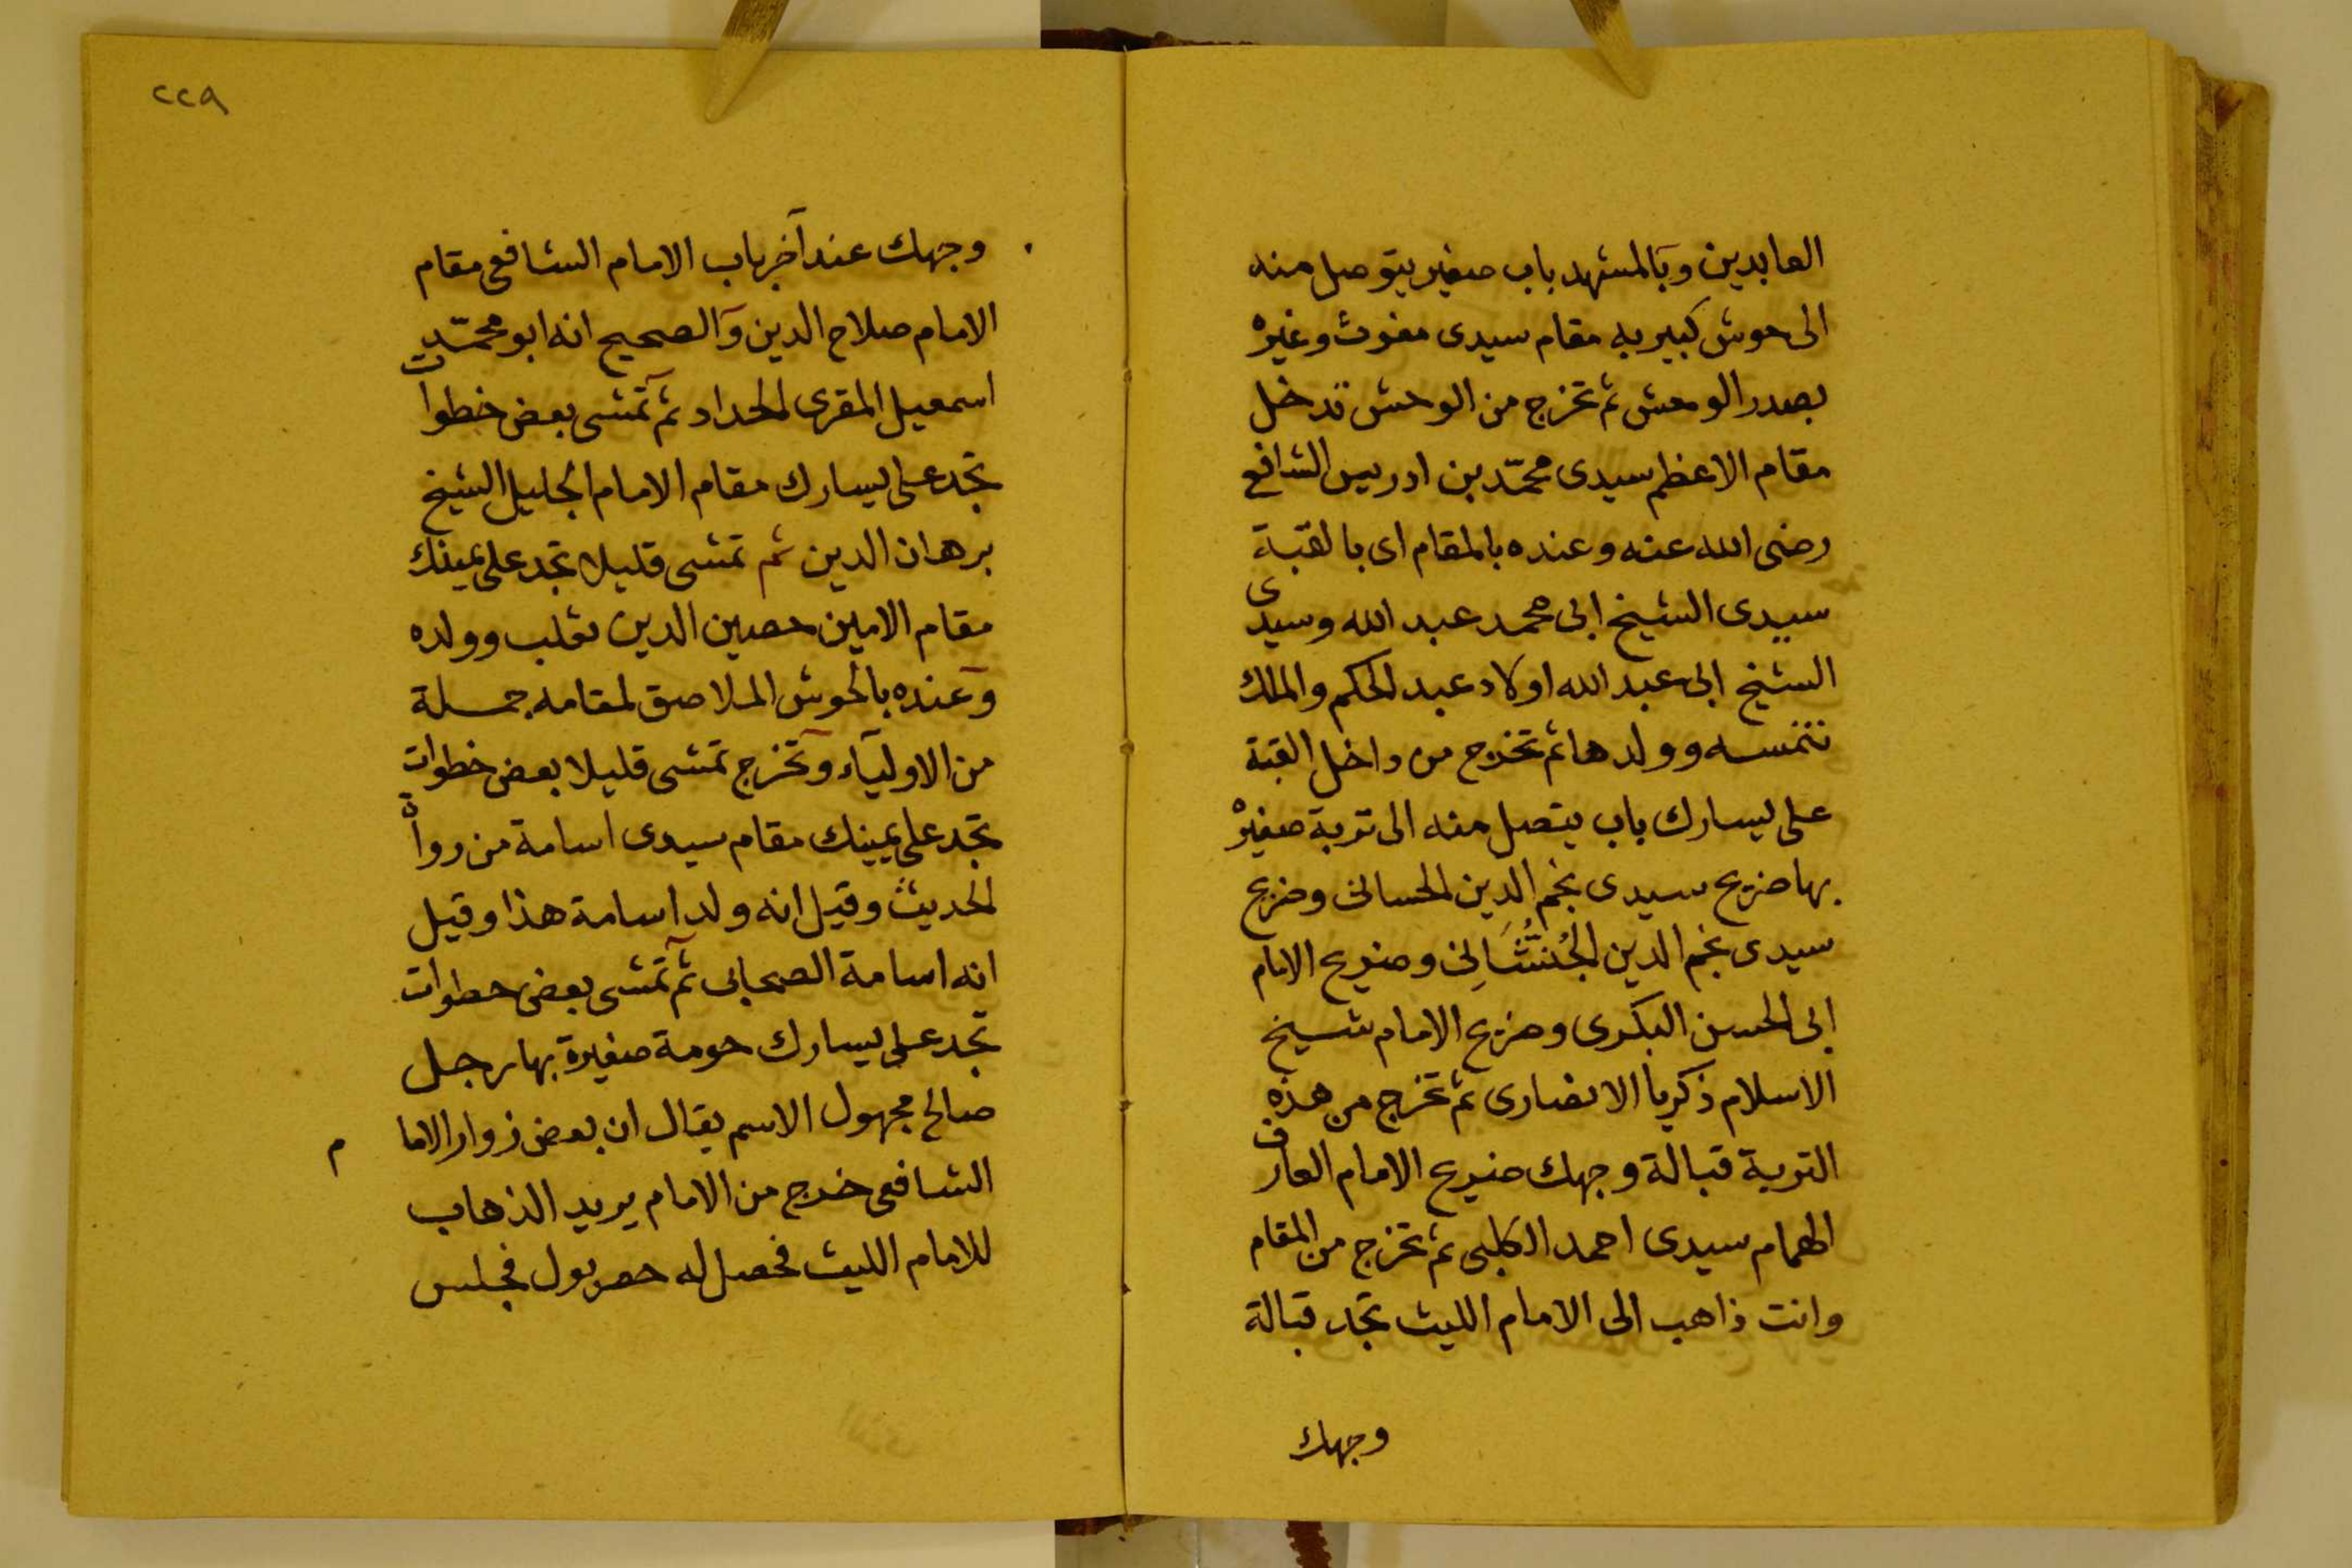 العابدين وبالمشهد باب صغير يتوصل منه
الى حوش كبير به مقام سيدى مغوث وغيره
بصدر الوحش ثم تخرج من الوحش تدخل
مقام الاعظم سيدى محمّد بن ادريس الشافع
رضى الله عنه وعنده بالمقام اى بالقبة
سيدى الشيخ ابى محمد عبد الله وسيدى
الشيخ ابى عبد الله اولاد عبد الحكم والملك
وولدها ثم تخرج من داخل القبة
على يسارك باب يتصل منه الى تربة صغيرة
بها ضريح سيدى نجم الدين الحسانى وضريح
سيدى نجم الدين وضريح الامام
ابى الحسن البكرى وضريح الامام شيخ
الاسلام زكريا الانصارى ثم تخرج من هذه
التربة قبالة وجهك ضريح الامام العارف
الهمام سيدى احمد الكلبى ثم تخرج من المقام
وانت ذاهب الى الامام الليث تجد قبالة
وجهك
٢٢٩
وجهك عند آخر باب الامام الشافعى مقام
الامام صلاح الدين والصحيح انه ابو محمّد
اسمعيل المقرى الحداد ثم تمشى بعض خطوات
تجد على يسارك مقام الامام الجليل الشيخ
برهان الدين ثم تمشى قليلا تجد على يمينك
مقام الامين حصين الدين ثعلب وولده
وعنده بالحوش الملاصق لمقامه جملة
من الاولياء وتخرج تمشى قليلا بعض خطوات
تجد على يمينك مقام سيدى اسامة من رواة
الحديث وقيل انه ولد اسامة هذا وقيل
انه اسامة الصحابى ثم تمشى بعض خطوات
تجد على يسارك حومة صغيرة بها رجل
صالح مجهول الاسم يقال ان بعض زوار الاما م
الشافعى خرج من الامام يريد الذهاب
للامام الليث فحصل له حصر بول فجلس